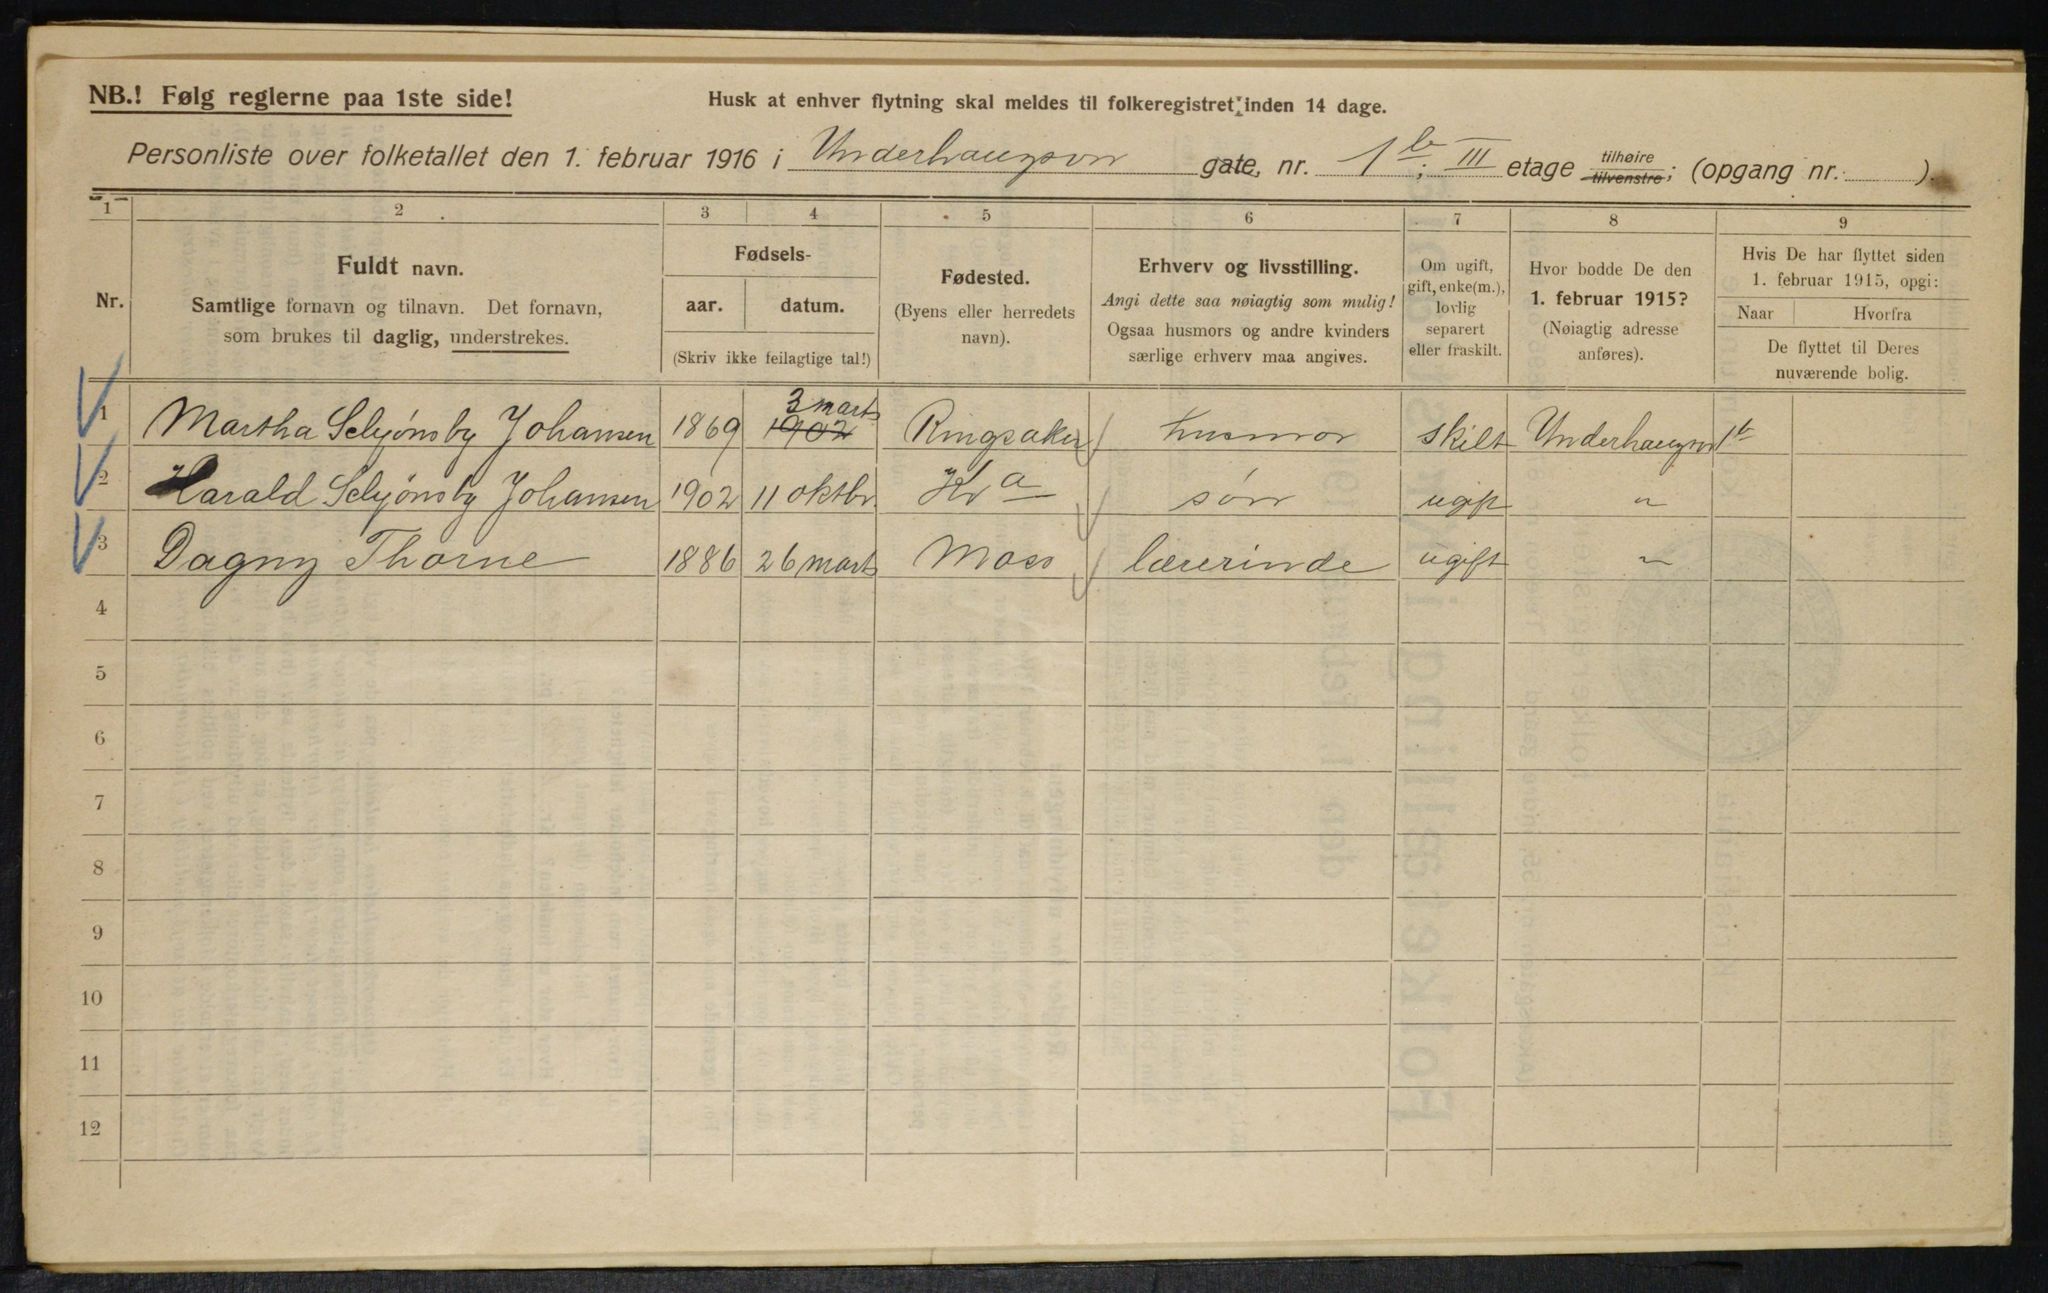 NB.! Følg reglerne paa 1ste side!
Husk at enhver flytning skal meldes til folkeregistret inden 14 dage.
Personliste over folketallet den 1. februar 1916 i Underhaugsvn gate, nr. 1b; III etage tilhøire tilvenstre; (opgang nr. ).
1 2 3 4 5 6 7 8 9
Nr.
Fuldt navn.
Samtlige fornavn og tilnavn. Det fornavn,
som brukes til daglig, understrekes.
Fødsels-
aar. datum.
(Skriv ikke feilagtige tal!)
Fødested.
(Byens eller herredets
navn).
Erhverv og livsstilling.
Angi dette saa nøiagtig som mulig!
Ogsaa husmors og andre kvinders
særlige erhverv maa angives.
Om ugift,
gift, enke(m.),
lovlig
separert
eller fraskilt.
Hvor bodde De den
1. februar 1915?
(Nøiagtig adresse
anføres).
Hvis De har flyttet siden
1. februar 1915, opgi:
Naar Hvorfra
De flyttet til Deres
nuværende bolig.
3 mart
1 Martha Selyønsby Johansen 1869 1902 Ringsaker husmor skilt Underhaugsvn 1b
2 Harald Selyønsby Johansen 1902 11 oktbr. Kra søn ugift "
3 Dagny Thorne 1886 26 mart Moss lærerinde ugift "
4
5
6
7
8
9
10
11
12